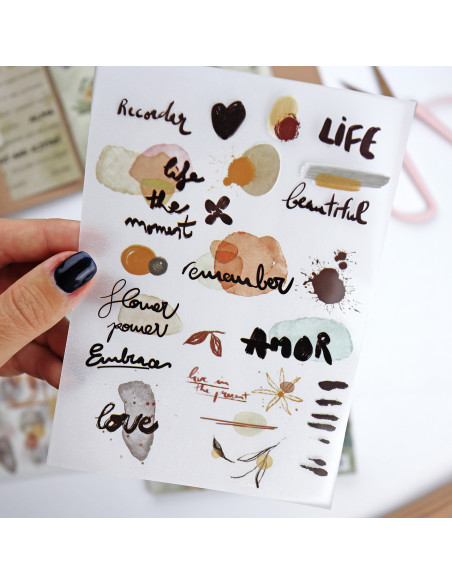 Recorder
LIFE
life
the
moment
beautiful
remember
flower
power
AMOR
Embrace
live in
the present
love